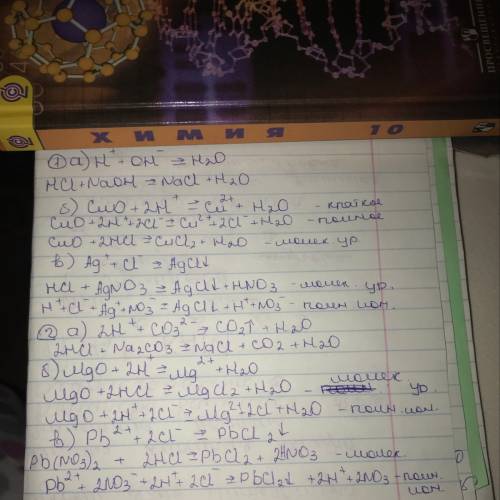 ХИМИЯ 10
① а) H⁺ + OH⁻ ⇄ H₂O
HCl + NaOH ⇄ NaCl + H₂O
б) CuO + 2H⁺ ⇄ Cu²⁺ + H₂O - краткое
CuO + 2H⁺ + 2Cl⁻ ⇄ Cu²⁺ + 2Cl⁻ + H₂O - полное
CuO + 2HCl ⇄ CuCl₂ + H₂O - молек ур.
в) Ag⁺ + Cl⁻ ⇄ AgCl↓
HCl + AgNO₃ ⇄ AgCl↓ + HNO₃ - молек. ур.
H⁺ + Cl⁻ + Ag⁺ + NO₃⁻ ⇄ AgCl↓ + H⁺ + NO₃⁻ - полн. ион.
② а) 2H⁺ + CO₃²⁻ ⇄ CO₂↑ + H₂O
2HCl + Na₂CO₃ ⇄ NaCl + CO₂ + H₂O
б) MgO + 2H⁺ ⇄ Mg²⁺ + H₂O
MgO + 2HCl ⇄ MgCl₂ + H₂O - молек ур.
MgO + 2H⁺ + 2Cl⁻ ⇄ Mg²⁺ 2Cl⁻ + H₂O - полн. ион.
в) Pb²⁺ + 2Cl⁻ ⇄ PbCl₂↓
Pb(NO₃)₂ + 2HCl ⇄ PbCl₂ + 2HNO₃ - молек.
Pb²⁺ + 2NO₃⁻ + 2H⁺ + 2Cl⁻ ⇄ PbCl₂↓ + 2H⁺ + 2NO₃ - полн. ион.